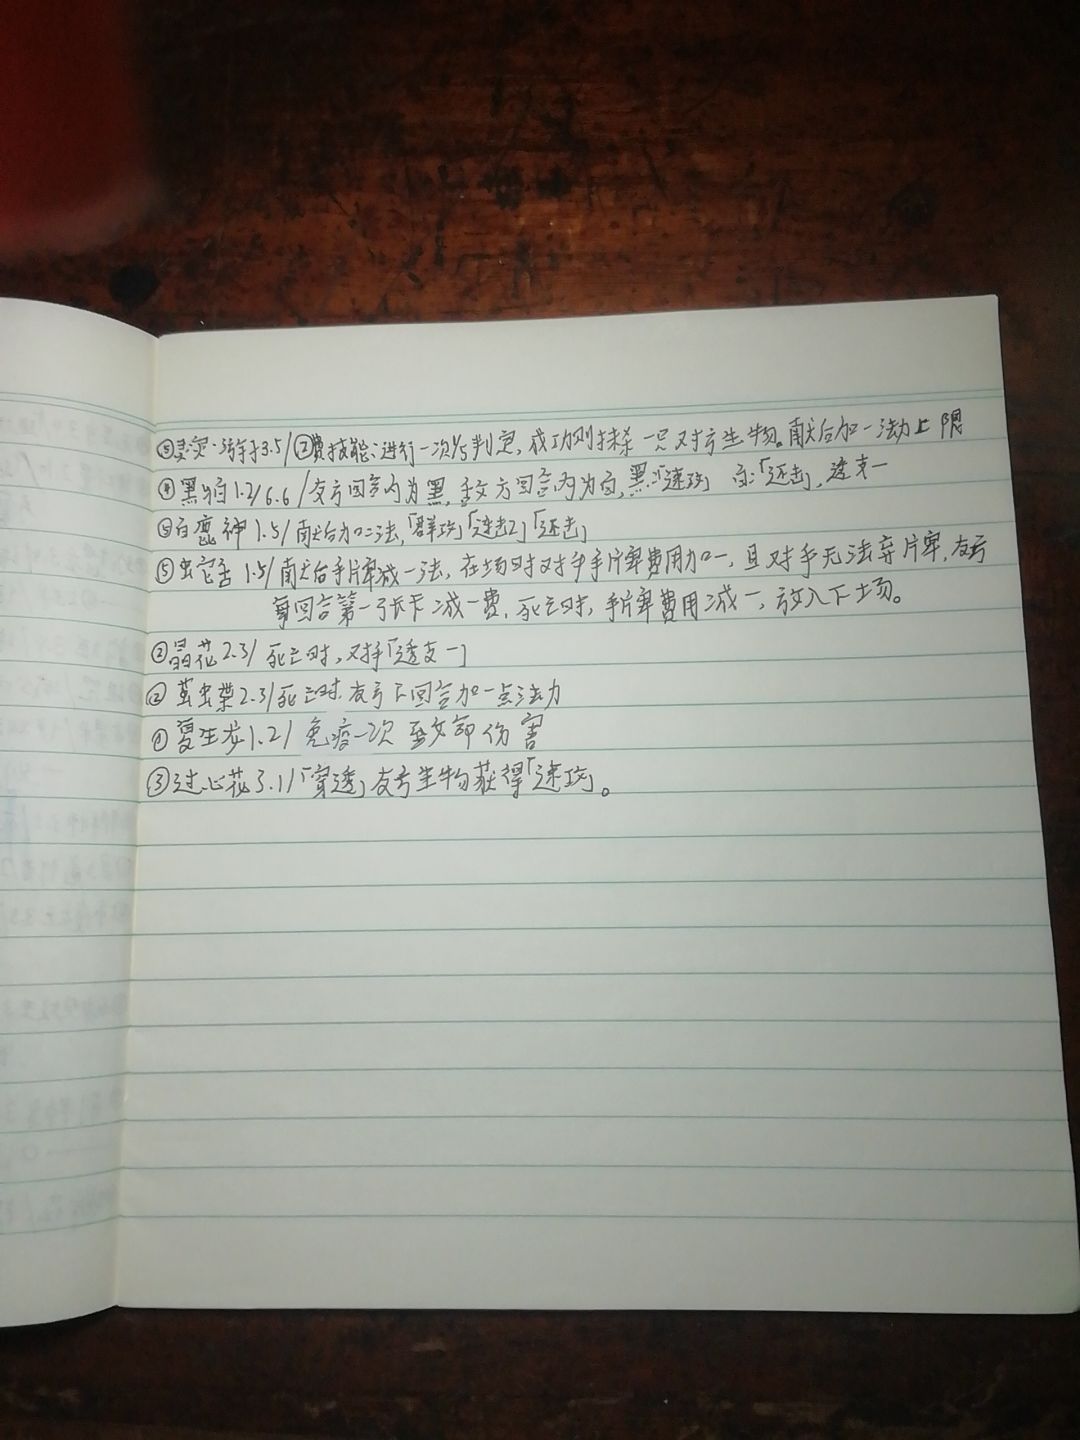 ⑤灵灵·弓箭手3.5/②费技能:进行一次判定,成功则抹杀一只对方生物。献后加一法力上限
④黑 1.2/6.6/友方回合内为黑,敌方回合内为白,黑:「速攻」 白:「还击」,透支一
⑥白鹿神1.5/献后加二法,「群攻」「连击2」「还击」
⑤虫它舌1.5/献后手片牌减一法,在场时对手手片牌费用加一,且对手无法弃片牌,友方
每回合第一张卡减一费,死亡时,手片牌费用减一,放入下场。
②晶花2.3/死亡时,对手「透支一」
②茧虫 2.3/死亡时,友方下回合加一点法力
①复生 1.2/免疫一次致命伤害
③过心花3.1/「穿透」友方生物获得「速攻」。